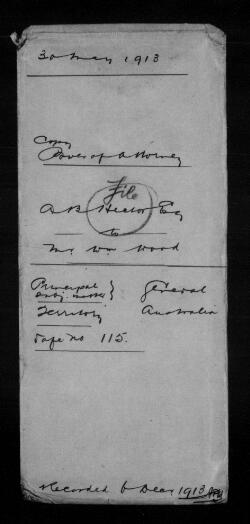 30 May 1913
Copy
Power of Attorney
File
A B Hector Esq
to
Mr Wm Wood
Principal } General
Subj. matter
Territory Australia
Safe No 115.
Recorded 6 Decr 1913